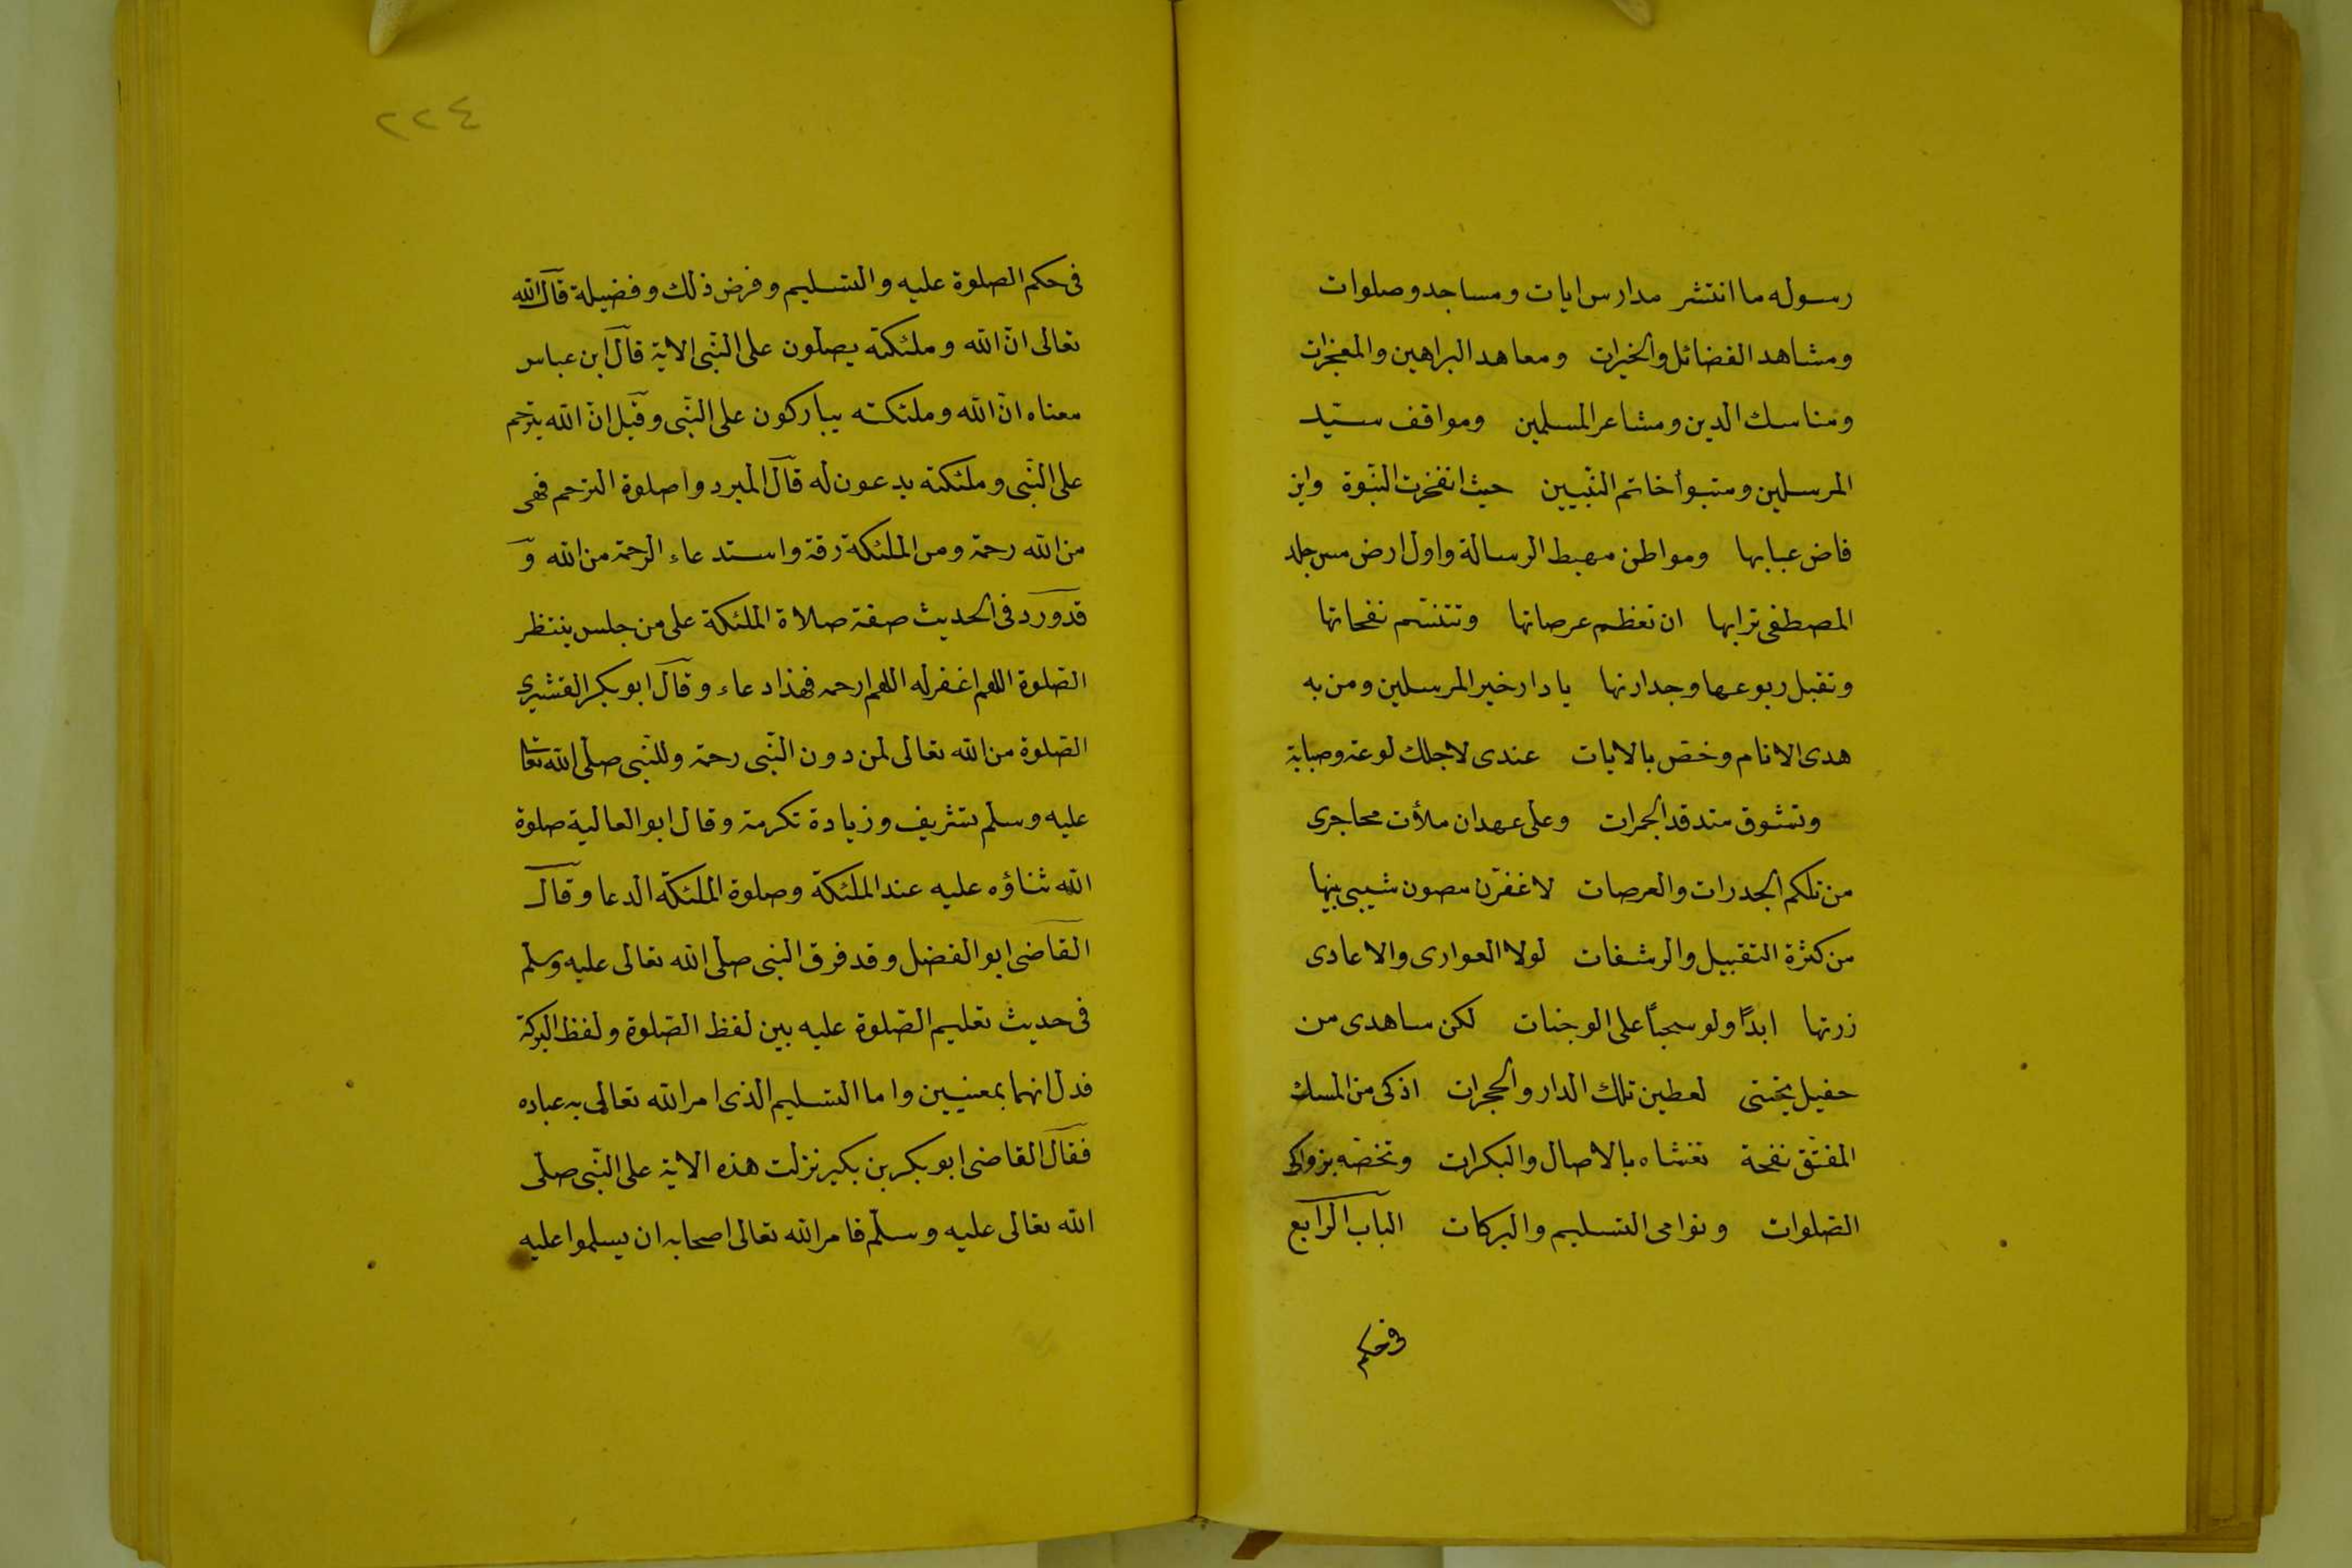 رسوله ما انتشر مدارس ايات ومساجد وصلوات
ومشاهد الفضائل والخيرات ومعاهد البراهين والمعجزات
ومناسك الدين ومشاعر المسلمين ومواقف سيّد
المرسلين ومتبوأ خاتم النبّيين حيث انفخرت النبّوة واين
فاض عبابها ومواطن مهبط الرسالة واول ارض مس جلد
المصطفى ترابها ان تعظم عرصاتها وتتنسّم نفحاتها
وتقبل ربوعها وجدارنها يا دار خير المرسلين ومن به
هدى الانام وخصّ بالايات عندى لاجلك لوعة وصبابة
وتشوق متدقد الجمرات وعلى عهد ان ملأت محاجرى
من تلكم الجدرات والعرصات لا غفرّن مصون شيبى بينها
من كثرة التقبيل والرشفات لولا العوارى والاعادى
زرتها ابدًا ولو سحبًا على الوجنات لكن ساهدى من
حفيل تحيتى لعطين تلك الدار والحجرات اذكى من المسك
المفتّق نفحة تغشاه بالاصال والبكرات وتخصّه بزواكى
الصّلوات ونوامى التسليم والبركات الباب الرابع
فى حكم
٢٢٤
فى حكم الصلوة عليه والتسليم وفرض ذلك وفضيلة قال الله
تعالى انّ الله وملئكته يصلّون على النّبى الاية قال ابن عباس
معناه انّ الله وملئكته يباركون على النّبى وقيل انّ الله يترحم
على النّبى وملئكته يدعون له قال المبرد واصلوة الترحم فهى
من الله رحمة ومن الملئكة رقة واستدعاء الرحمة من الله و
قد ورد فى الحديث صفة صلاة الملئكة على من جلس ينتظر
الصّلوة اللهم اغفر له اللهم ارحمه فهذا دعاء وقال ابو بكر القشيرى
الصّلوة من الله تعالى لمن دون النّبى رحمة وللنّبى صلّى الله تعا
عليه وسلّم تشريف وزيادة تكرمة وقال ابو العالية صلوة
الله ثناؤه عليه عند الملئكة وصلوة الملئكة الدعا وقال
القاضى ابو الفضل وقد فرق النبى صلّى الله تعالى عليه وسلّم
فى حديث تعليم الصّلوة عليه بين لفظ الصّلوة ولفظ البركة
فدل انهما بمعنيين واما التسليم الذى امر الله تعالى به عباده
فقال القاضى ابو بكر بن بكير نزلت هذه الاية على النّبى صلّى
الله تعالى عليه وسلّم فامر الله تعالى اصحابه ان يسلموا عليه